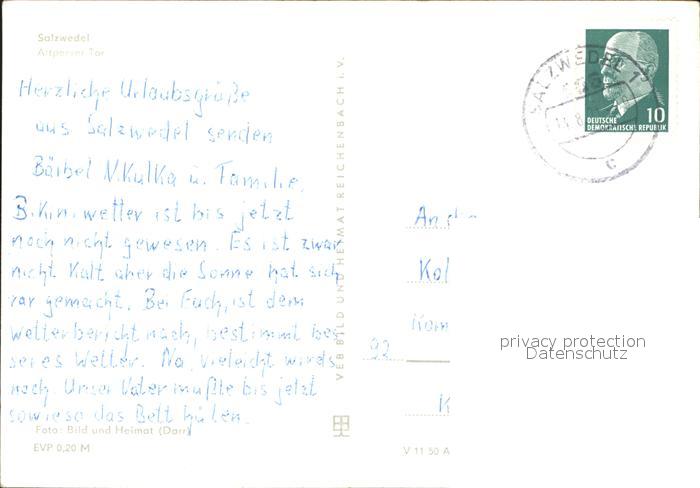 Salzwedel
Altperver Tor
Herzliche Urlaubsgrüße
aus Salzwedel senden
Bärbel N. Kulka u. Familie.
Bikiniwetter ist bis jetzt
noch nicht gewesen. Es ist zwar
nicht Kalt aber die Sonne hat sich
rar gemacht. Bei Euch, ist dem
Wetterbericht nach, bestimmt bes
seres Wetter. Na, vieleicht wirds
noch. Unser Vater mußte bis jetzt
sowieso das Bett hüten.
Foto: Bild und Heimat (Darr)
EVP 0,20 M
VEB BILD UND HEIMAT REICHENBACH i. V.
SALZWEDEL 1
c
10
DEUTSCHE
DEMOKRATISCHE REPUBLIK
An
Kol
92
K
V 11 50 A
privacy protection
Datenschutz